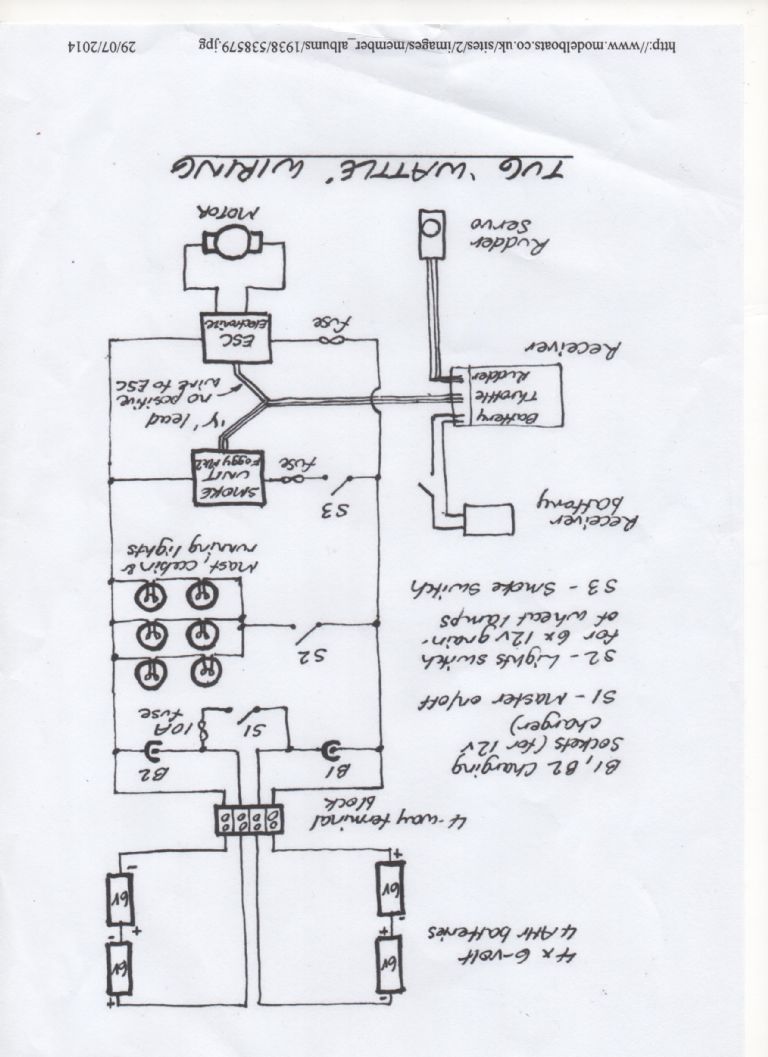 4 x 6-volt
4 AHr batteries
-
6V
+
-
6V
+
+
6V
-
+
6V
-
4-way terminal
block
B1, B2 Charging
sockets (for 12v
charger)
S1 - Master on/off
S2 - Lights switch
for 6 x 12v grain-
of wheat lamps
S3 - Smoke switch
B1
B2
S1
10A
fuse
S2
Mast, cabin &
running lights
S3
fuse
SMOKE
UNIT
Foggy Mk2
Receiver
battery
Battery
Throttle
Rudder
Receiver
'Y' lead
no positive
wire to ESC
fuse
ESC
Electronize
Rudder
Servo
MOTOR
TUG 'WATTLE' WIRING
http://www.modelboats.co.uk/sites/2/images/member_albums/1938/538579.jpg
29/07/2014